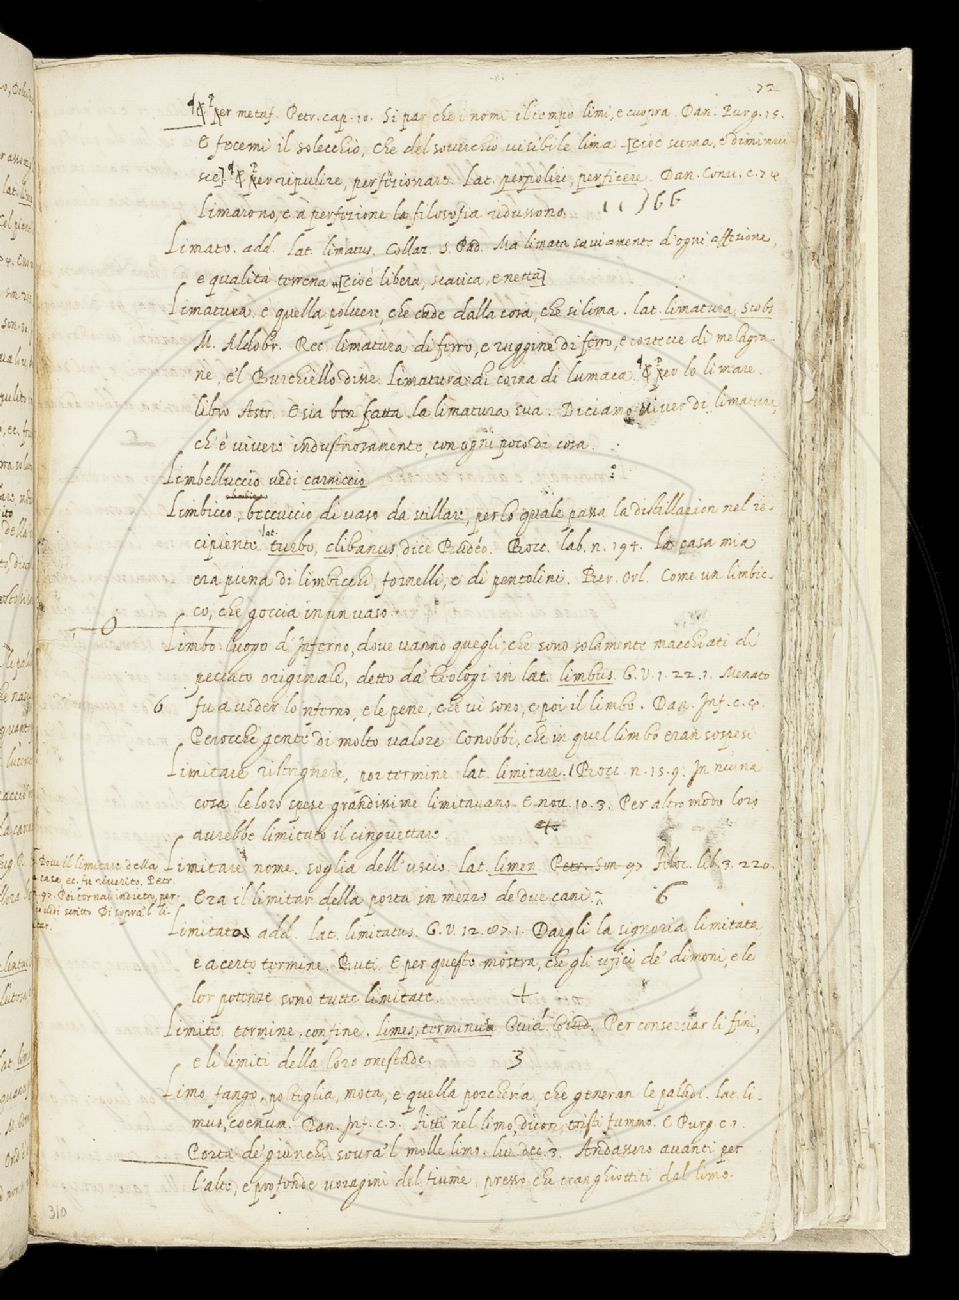 72
¶ Per metaf. Petr. cap. 10. Si par che i nomi il tempo limi, e cuopra. Dan. Purg. 15.
E fecemi il solecchio, che del soverchio visibile lima [cioè scema, e diminui
sce] ¶ Per ripulire, perfezionare. Lat. perpolire, perficere. Dan. Conv. c. 74
Limarono, e a perfezione la filosofia ridussono. 166
Limato. add. Lat. limatus. Collaz. S. Pad. Ma limata saviamente d'ogni affezione,
e qualità terrena [cioè libera, scarica, e netta]
Limatura, è quella polvere, che cade dalla cosa, che si lima. Lat. limatura, scobs
M. Aldobr. Rec. limatura di ferro, e ruggine di ferro, e cortecce di melagra-
ne, e'l Burchiello disse. Limatura di corna di lumaca. ¶ Per lo limare.
libro Astr. E sia ben fatta la limatura sua. Diciamo viver di limature,
ch'è vivere industriosamente, con ogni poco di cosa.
Limbelluccio vedi carniccio
Limbicco, beccuccio di vaso da stillare, per lo quale passa la distillazion nel re-
cipiente. lat. turbo, clibanus, dice Budéo. Bocc. lab. n. 194. La casa mia
era piena di limbicchi, fornelli, e di pentolini. Ber. Orl. Come un limbic-
co, che goccia in un vaso
Limbo luogo d'Inferno, dove vanno quegli, che sono solamente macchiati di
peccato originale, detto da' teologi in lat. limbus. G. V. 1. 22. 1. Menato
6 fu a veder lo nferno, e le pene, che vi sono, e poi il limbo. Dan. Inf. c. 4.
Perocchè gente di molto valore Conobbi, che in quel limbo eran sospesi
Limitare ristrignere, por termine. lat. limitare. Bocc. n. 15. 9. In niuna
cosa le loro spese grandissime limitavano. E nov. 10. 3. Per altro modo loro
avrebbe limitato il cinguettare
Limitare nome, soglia dell'uscio. Lat. limen. Petr. Son 97 Filoc. lib. 3. 220.
Era il limitar della porta in mezzo de' due cani. 6
Dove il limitare della
casa, ec. fu riverito. Petr.
97. Poi tornai indietro, per-
ch'io vidi scritto Di sopra 'l li-
mitar.
Limitato add. lat. limitatus. G. V. 12. 87. 1. Dargli la signoria limitata
e a certo termine. Buti. E per questo mostra, che gli ufici de' dimoni, e le
lor potenze sono tutte limitate.
Limite. termine, confine. limes, terminus Guid. Giud. Per conservar li fini,
e li limiti della loro onestade. 3
Limo, fango, poltiglia, mota, e quella porcheria, che generan le paludi. lat. li-
mus, coenum. Dan. Inf. c. 7. Fitti nel limo, dicon, tristi fummo. E Purg. c. 1.
Porta de' giunchi sovra 'l molle limo. liv. dec. 3. Andassero avanti per
l'alte, e profonde voragini del fiume, presso che tranghiottiti dal limo.
310